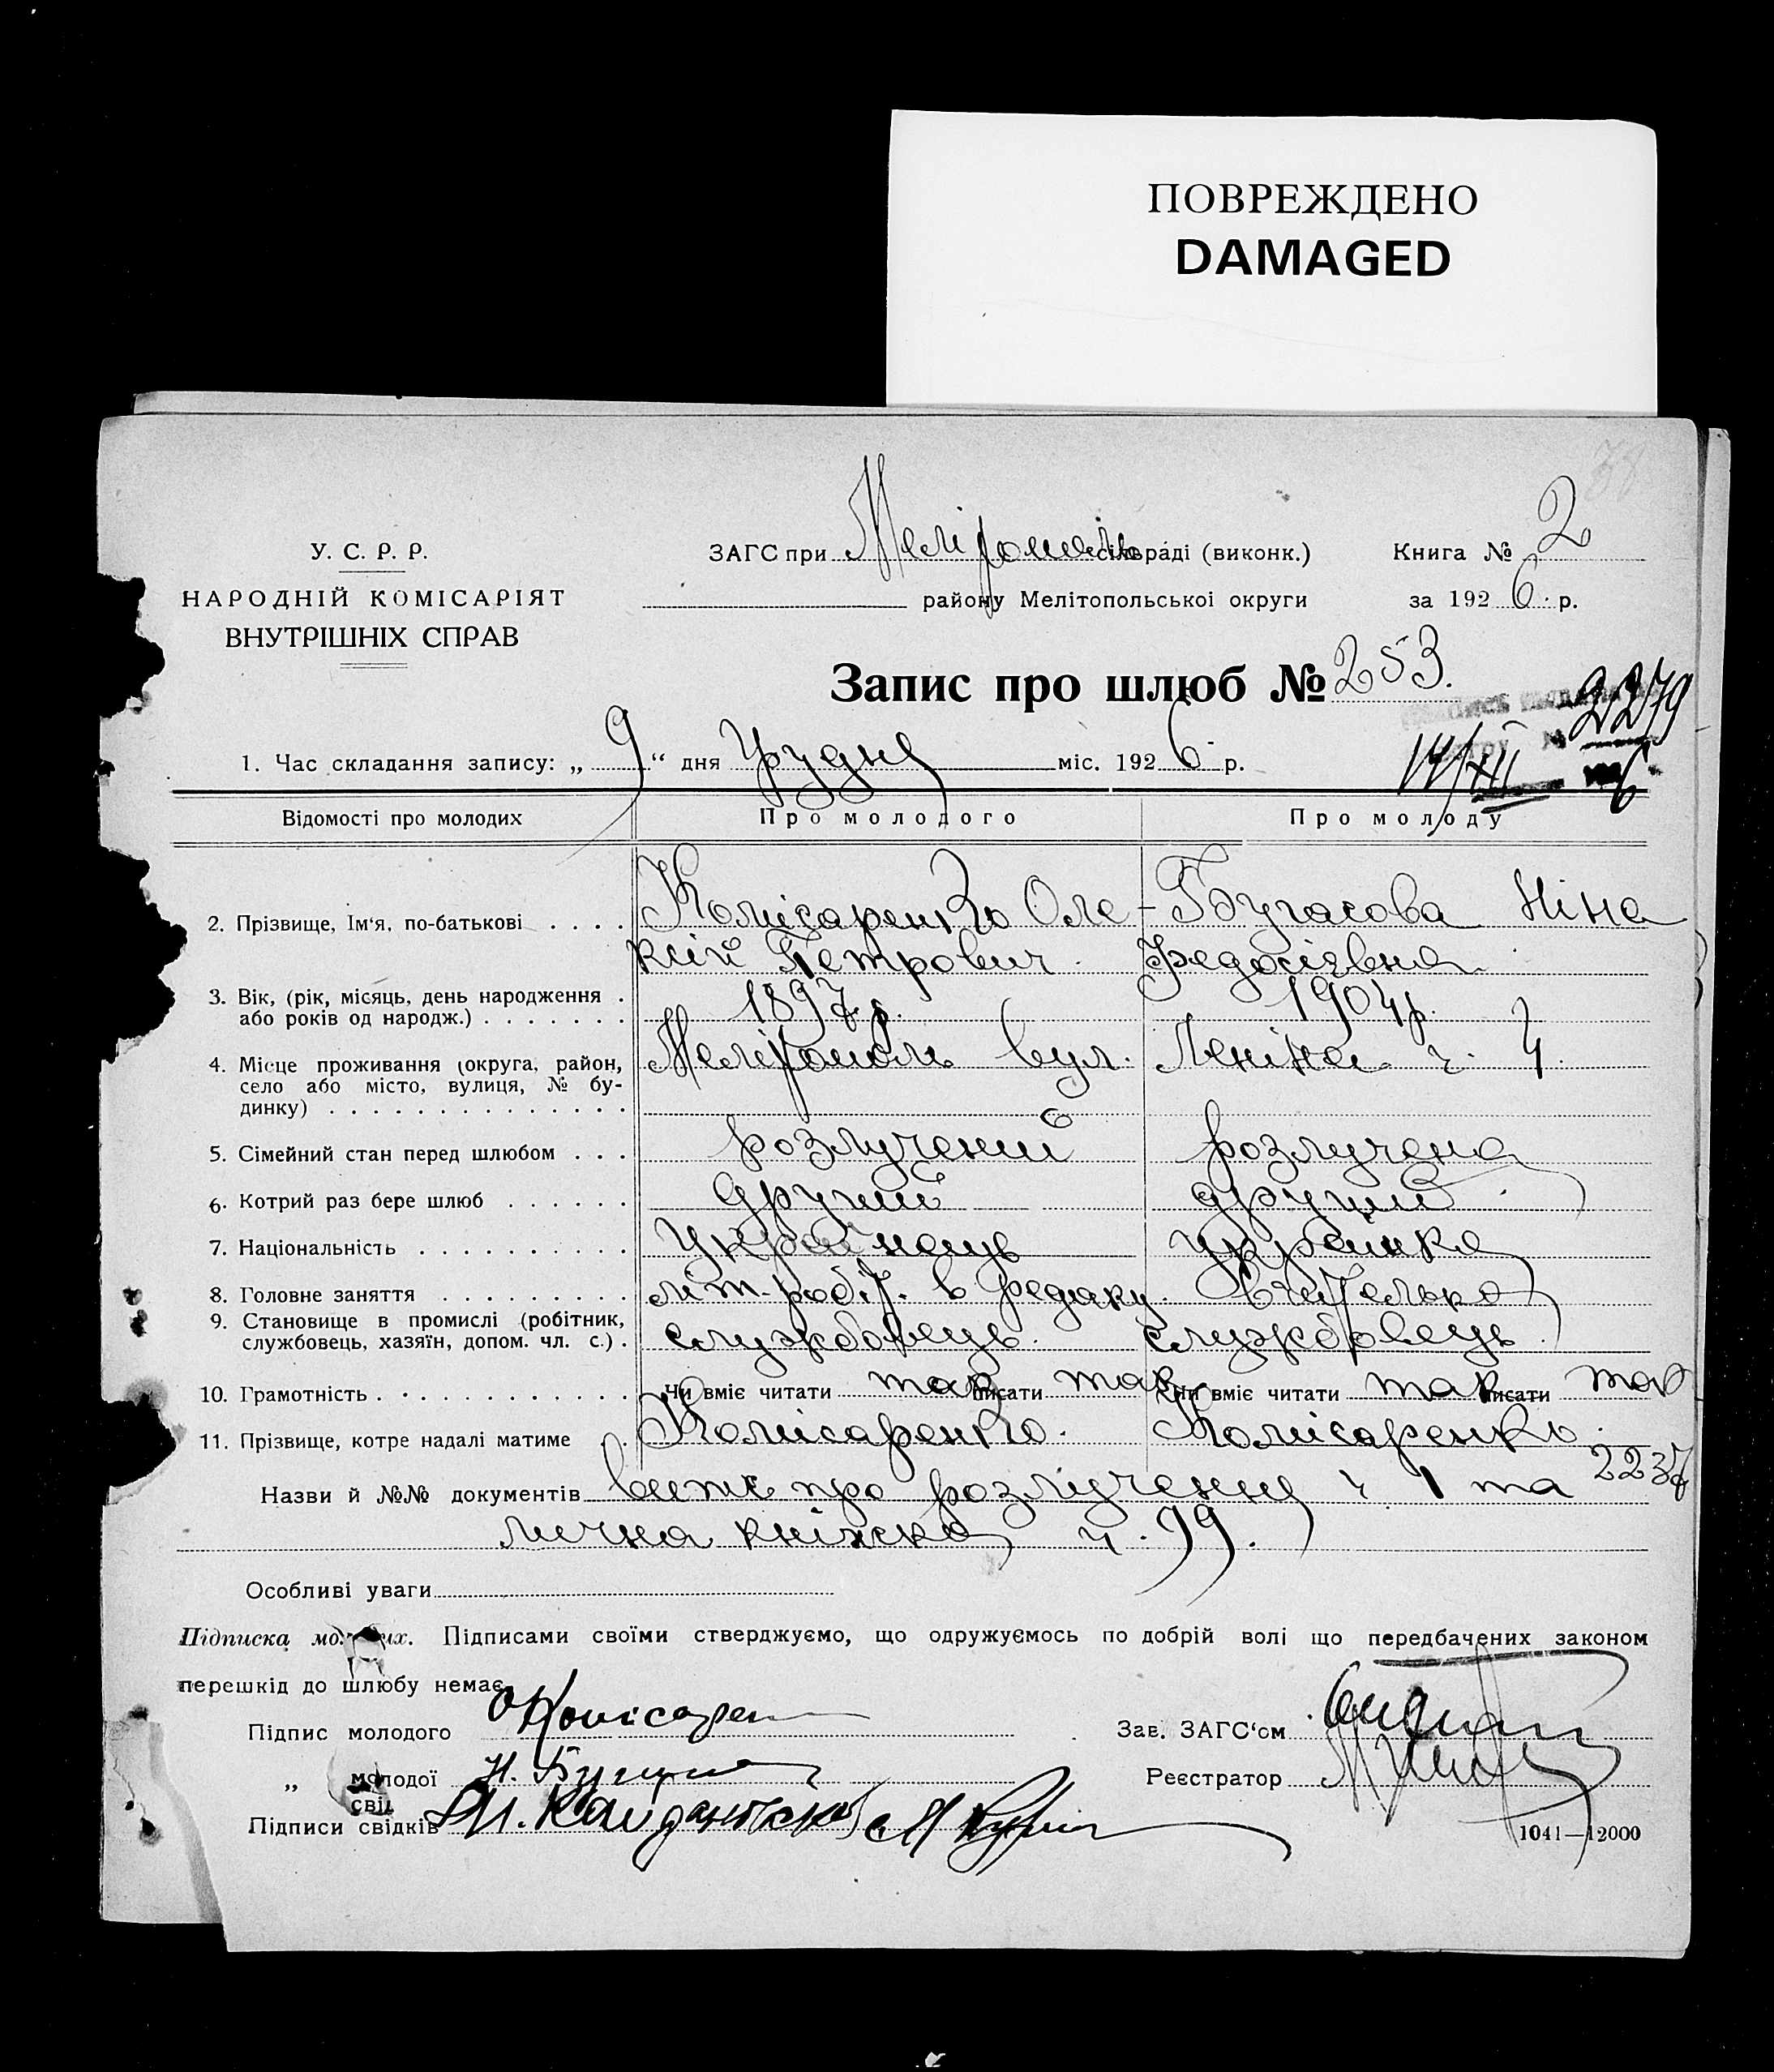 ПОВРЕЖДЕНО
DAMAGED
38
У. С. Р. Р.
НАРОДНІЙ КОМІСАРІЯТ
ВНУТРІШНІХ СПРАВ
ЗАГС при Мелітополь сільраді (виконк.)
району Мелітопольської округи
Книга № 2
за 1926 р.
Запис про шлюб № 253.
2279
14/XII 6
1. Час складання запису: „ 9 “ дня Грудня міс. 1926 р.
Відомості про молодих Про молодого Про молоду
2. Прізвище, Ім‘я, по-батькові . . . . Комісаренко Оле- Бугасова Ніна
ксій Петрович. Федосіївна
3. Вік, (рік, місяць, день народження . 1897 р. 1904 р.
або років од народж.) . . . . . . .
4. Місце проживання (округа, район, Мелітополь вул. Леніна ч. 4.
село або місто, вулиця, № бу-
динку) . . . . . . . . . . . . . .
5. Сімейний стан перед шлюбом . . . розлучений розлучена
6. Котрий раз бере шлюб . . . . . . другий другий
7. Національність . . . . . . . . . . Українець українка
8. Головне заняття . . . . . . . . . літ. робіт. в редакц. вчителька
9. Становище в промислі (робітник,
службовець, хазяїн, допом. чл. с.) . службовець. службовець.
10. Грамотність . . . . . . . . . . . . Чи вміє читати так писати так Чи вміє читати так писати так
11. Прізвище, котре надалі матиме . . Комісаренко. Комісаренко.
Назви й №№ документів витяг про розлучення ч 1 та 2237
лична кніжка ч. 99.
Особливі уваги
Підписка молодих. Підписами своїми стверджуємо, що одружуємось по добрій волі що передбачених законом
перешкід до шлюбу немає.
Підпис молодого О Комісарен
Зав. ЗАГС‘ом
„ молодої Н. Бугас
Реєстратор
свід
Підписи свідків
1041—12000